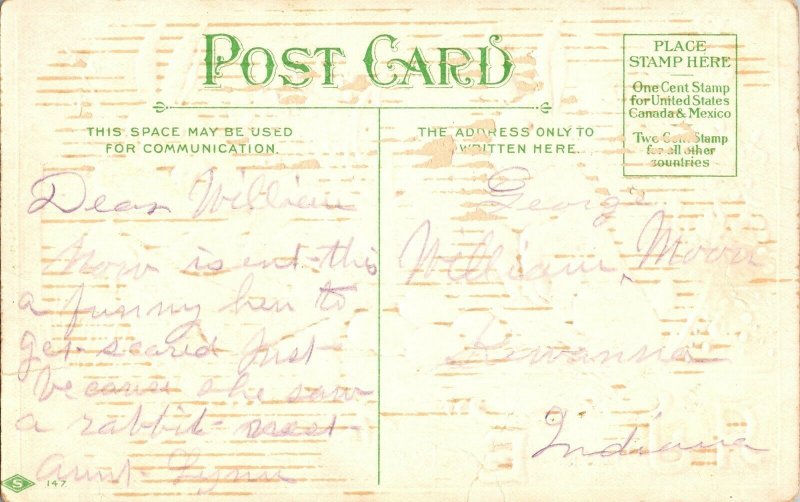 POST CARD
PLACE
STAMP HERE
One Cent Stamp
for United States
Canada & Mexico
Two Cent Stamp
for all other
countries
THIS SPACE MAY BE USED
FOR COMMUNICATION.
THE ADDRESS ONLY TO
WRITTEN HERE.
Dear William
Now is ent this
a funny hen to
get scared just
because she saw
a rabbit nest
Aunt Lynn
George
William Moon
Kewanna
Indiana
S
147